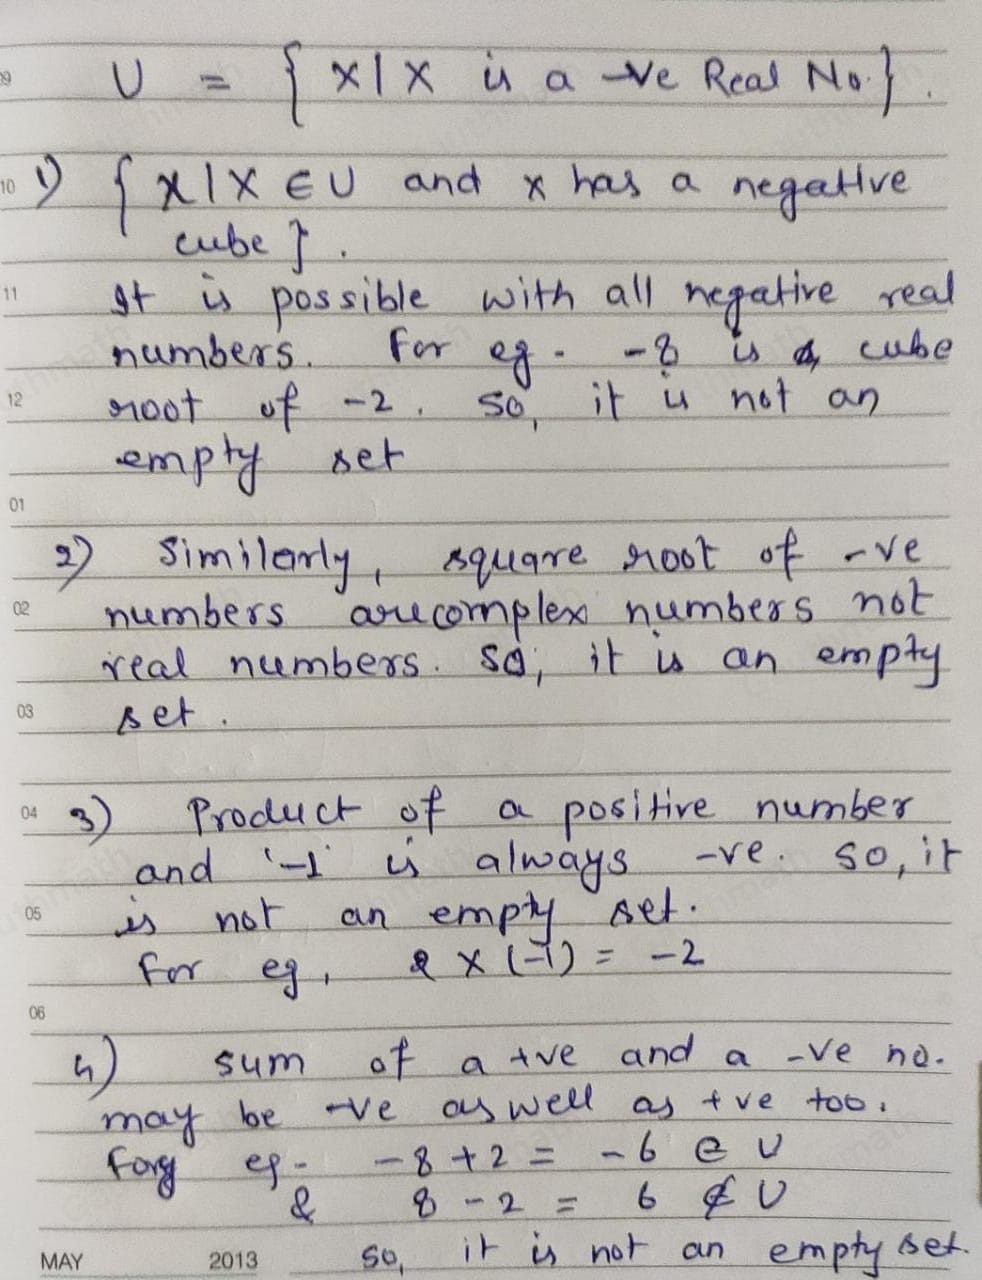 09 U = { x | x is a -ve Real No. }.
10 1) { x | x ∈ U and x has a negative
cube }.
11 It is possible with all negative real
numbers. For eg - -8 is a cube
12 root of -2. so, it is not an
empty set
01
2) Similarly, square root of -ve
02 numbers are complex numbers not
real numbers. so, it is an empty
03 set.
04 3) Product of a positive number
and '-1' is always -ve. so, it
05 is not an empty set.
For eg, 2 x (-1) = -2
06
4) sum of a +ve and a -ve no.
may be -ve as well as +ve too.
For eg - -8 + 2 = -6 ∈ U
& 8 - 2 = 6 ∉ U
MAY 2013 so, it is not an empty set.